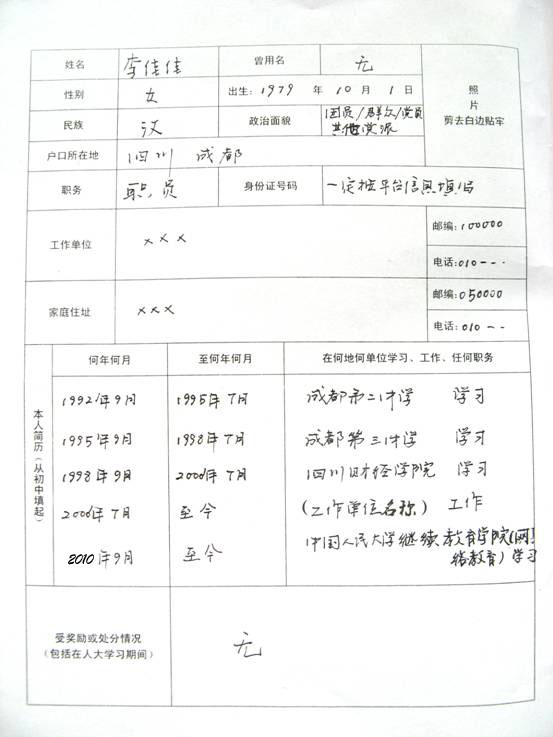 姓名 李佳佳 曾用名 无
性别 女 出生：1979 年 10 月 1 日
照
片
剪去白边贴牢
民族 汉 政治面貌 团员/群众/党员
其他党派
户口所在地 四川 成都
职务 职员 身份证号码 一定按平台信息填写
工作单位 ×××
邮编：100000
电话：010---
家庭住址 ×××
邮编：050000
电话：010--
本人简历（从初中填起）
何年何月 至何年何月 在何地何单位学习、工作、任何职务
1992年9月 1995年7月 成都市二中学 学习
1995年9月 1998年7月 成都第三中学 学习
1998年9月 2000年7月 四川财经学院 学习
2000年7月 至今 （工作单位名称） 工作
2010年9月 至今 中国人民大学继续教育学院（网
络教育）学习
受奖励或处分情况
（包括在人大学习期间）
无